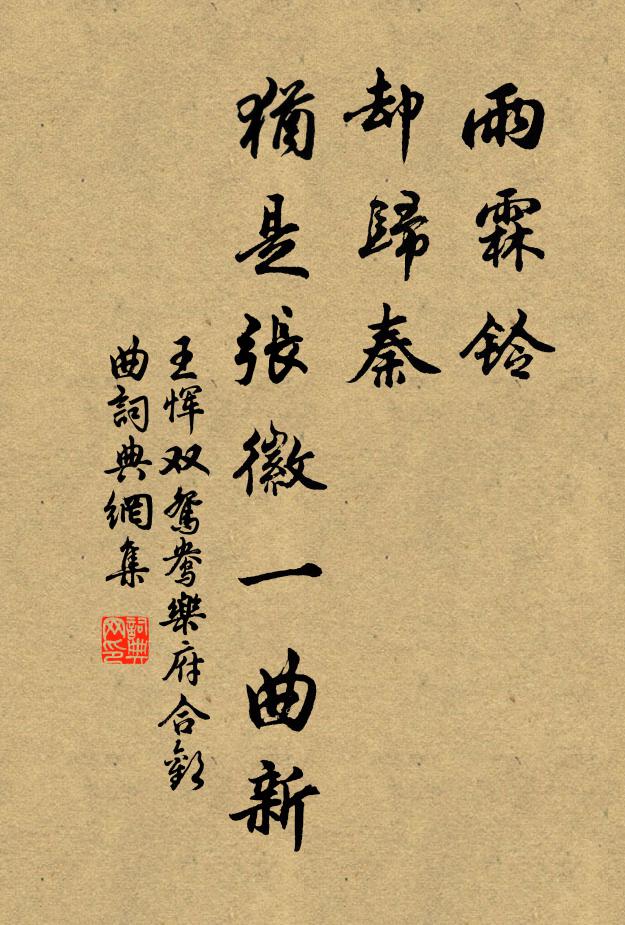 雨霖鈴
却歸秦
猶是張徽一曲新
王恽双鴛鴦樂府合歡
曲詞典網集
詞典
网印